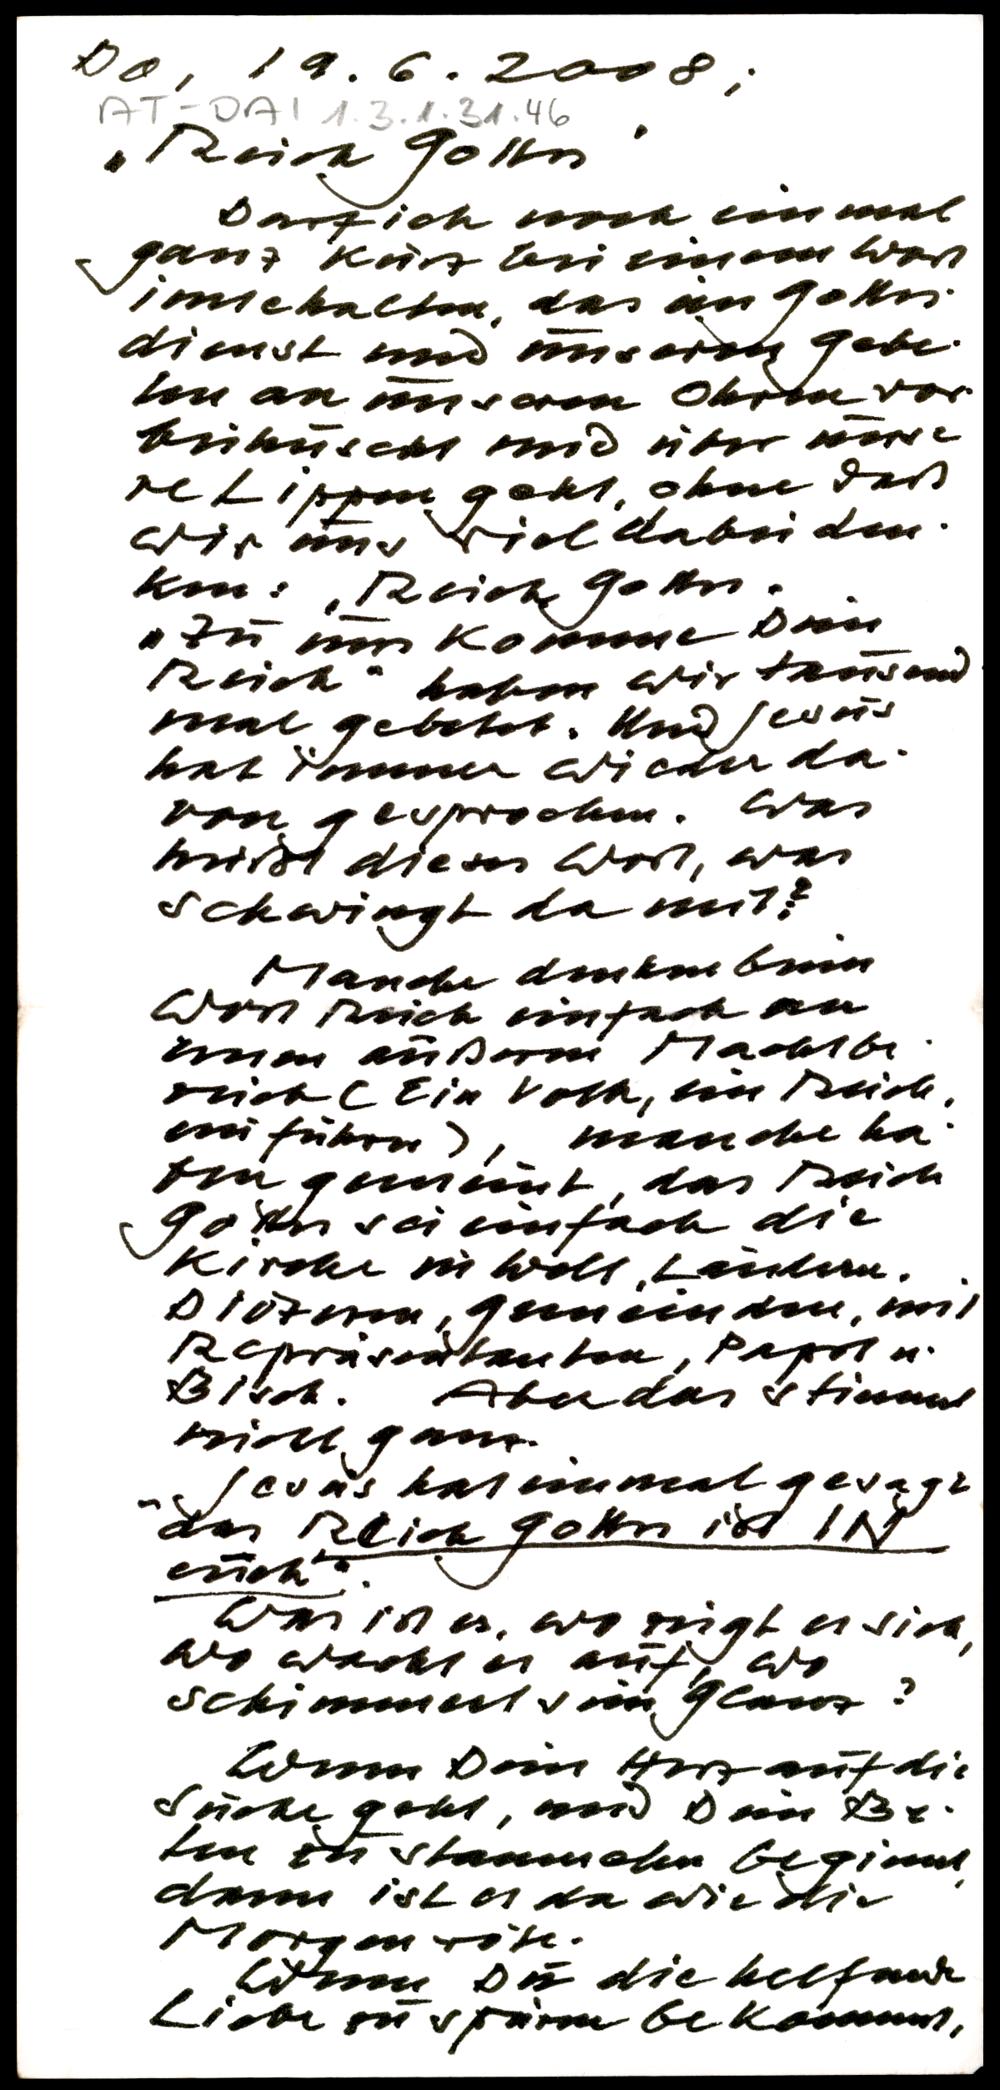 Do, 19.6.2008;
AT-DAI 1.3.1.31.46
"Reich Gottes"
Darf ich noch einmal
ganz kurz bei einem Wort
innehalten, das im Gottes-
dienst und unseren Gebe-
ten an unseren Ohren vor-
beihuscht und über unse-
re Lippen geht, ohne daß
wir uns viel dabei den-
ken: "Reich Gottes.
"Zu uns komme Dein
Reich" haben wir tausend
mal gebetet. Und Jesus
hat immer wieder da-
von gesprochen. Was
heißt dieses Wort, was
schwingt da mit?
Manche denken beim
Wort Reich einfach an
einen äußeren Machtbe-
reich (Ein Volk, ein Reich,
ein Führer), manche ha-
ben gemeint, das Reich
Gottes sei einfach die
Kirche in Welt, Ländern,
Diözesen, Gemeinden, mit
Repräsentanten, Papst u.
Bisch. Aber das stimmt
nicht ganz.
Jesus hat einmal gesagt
"das Reich Gottes ist IN
euch".
Was ist es, wo zeigt es sich,
wo wacht es auf, wo
schimmert sein Glanz?
Wenn Dein Herz auf die
Suche geht, und Dein Be-
ten zu stammeln beginnt,
dann ist es da wie die
Morgenröte.
Wenn Du die helfende
Liebe zu spüren bekommst,